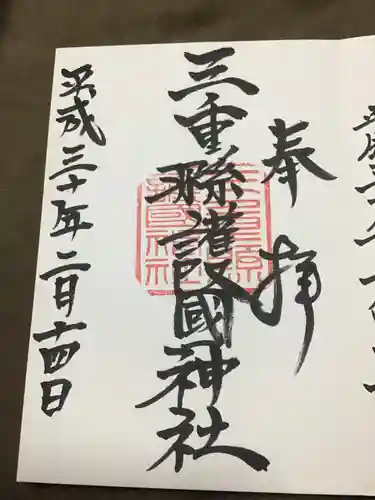 奉拝
三重縣護國神社
平成三十年二月十四日